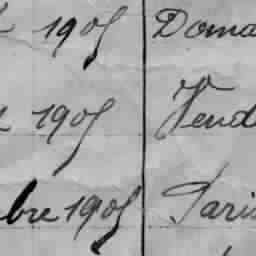 1905 Doma
1905 Vend
bre 1905 Paris